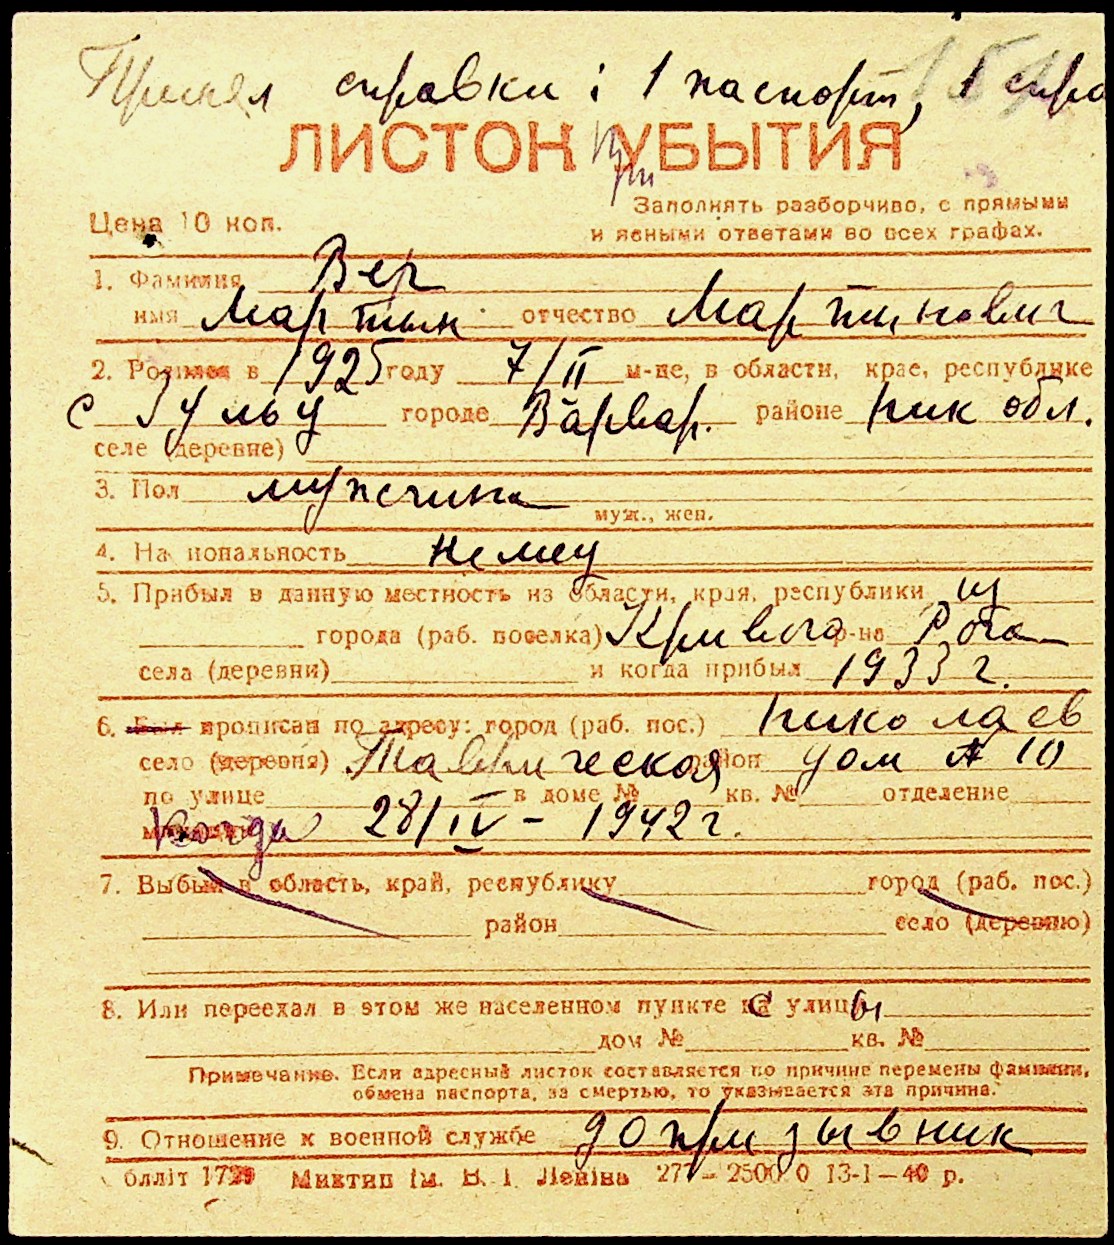 справки: 1 паспорт, 1 спра
ЛИСТОК УБЫТИЯ
Цена 10 коп.
Заполнять разборчиво, с прямыми
и ясными ответами во всех графах.
1. Фамилия Вер
имя Мартын отчество Мартинович
2. Родился в 1925 году 7/II м-це, в области, крае, республике
с Зульц городе Варвар. районе Ник обл.
селе (деревне)
3. Пол мужчина
муж., жен.
4. Национальность немец
5. Прибыл в данную местность из области, края, республики из
города (раб. поселка) Кривого р-на Рога
села (деревни) и когда прибыл 1933 г.
6. Был прописан по адресу: город (раб. пос.) Николаев
село (деревня) Таврическая район дом № 10
по улице в доме № кв. № отделение
Когда 28/IV – 1942 г.
7. Выбыл в область, край, республику город (раб. пос.)
район село (деревню)
8. Или переехал в этом же населенном пункте с улицы
дом № кв. №
Примечание. Если адресный листок составляется по причине перемены фамилии,
обмена паспорта, за смертью, то указывается эта причина.
9. Отношение к военной службе допризывник
Миктип ім. В. І. Леніна 277–25000 13-1–40 р.